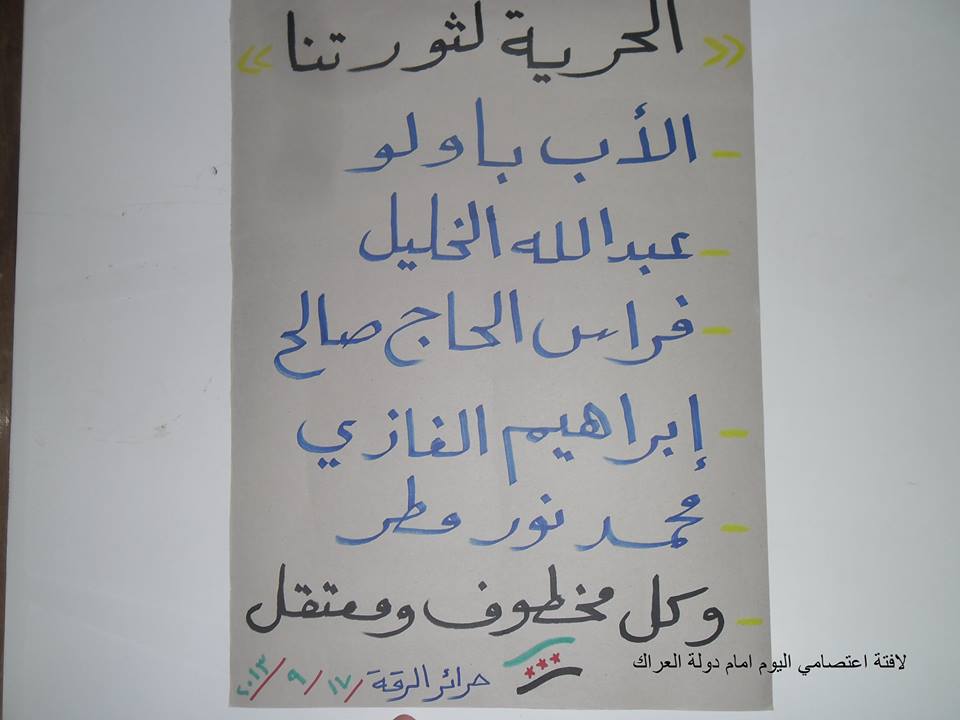 « الحرية لثورتنا »
- الأب باولو
- عبدالله الخليل
- فراس الحاج صالح
- إبراهيم الغازي
- محمد نور مطر
- وكل مخطوف ومعتقل
حرائر الرقة ١٧/٩/٢٠١٣
لافتة اعتصامي اليوم امام دولة العراك